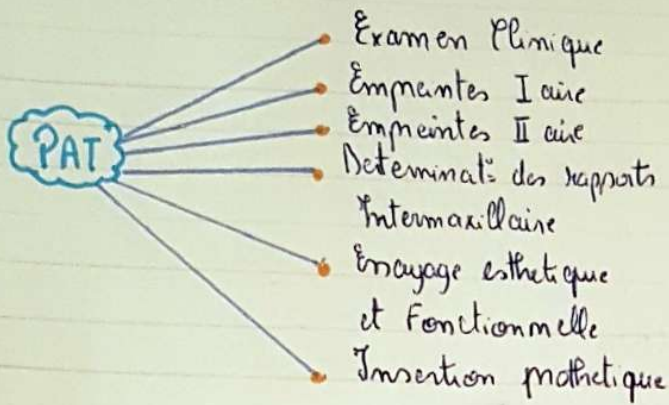 PAT
Examen Clinique
Empreintes I aire
Empreintes II aire
Determinat° des rapports
Intermaxillaire
Essayage esthetique
et Fonctionnelle
Insertion prothetique